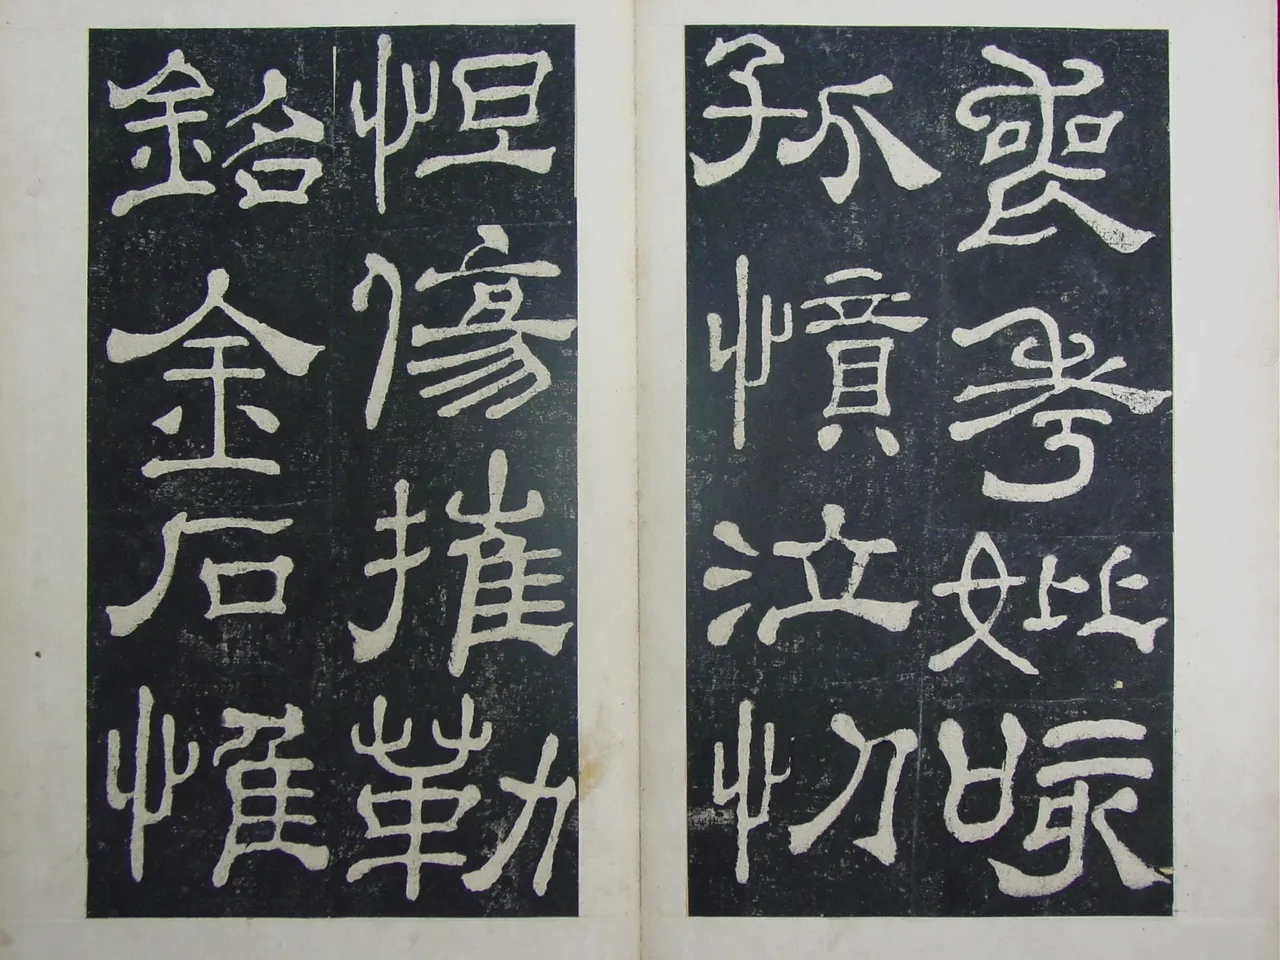 喪考妣咳
孤憤泣忉
怛傷摧勒
銘金石惟